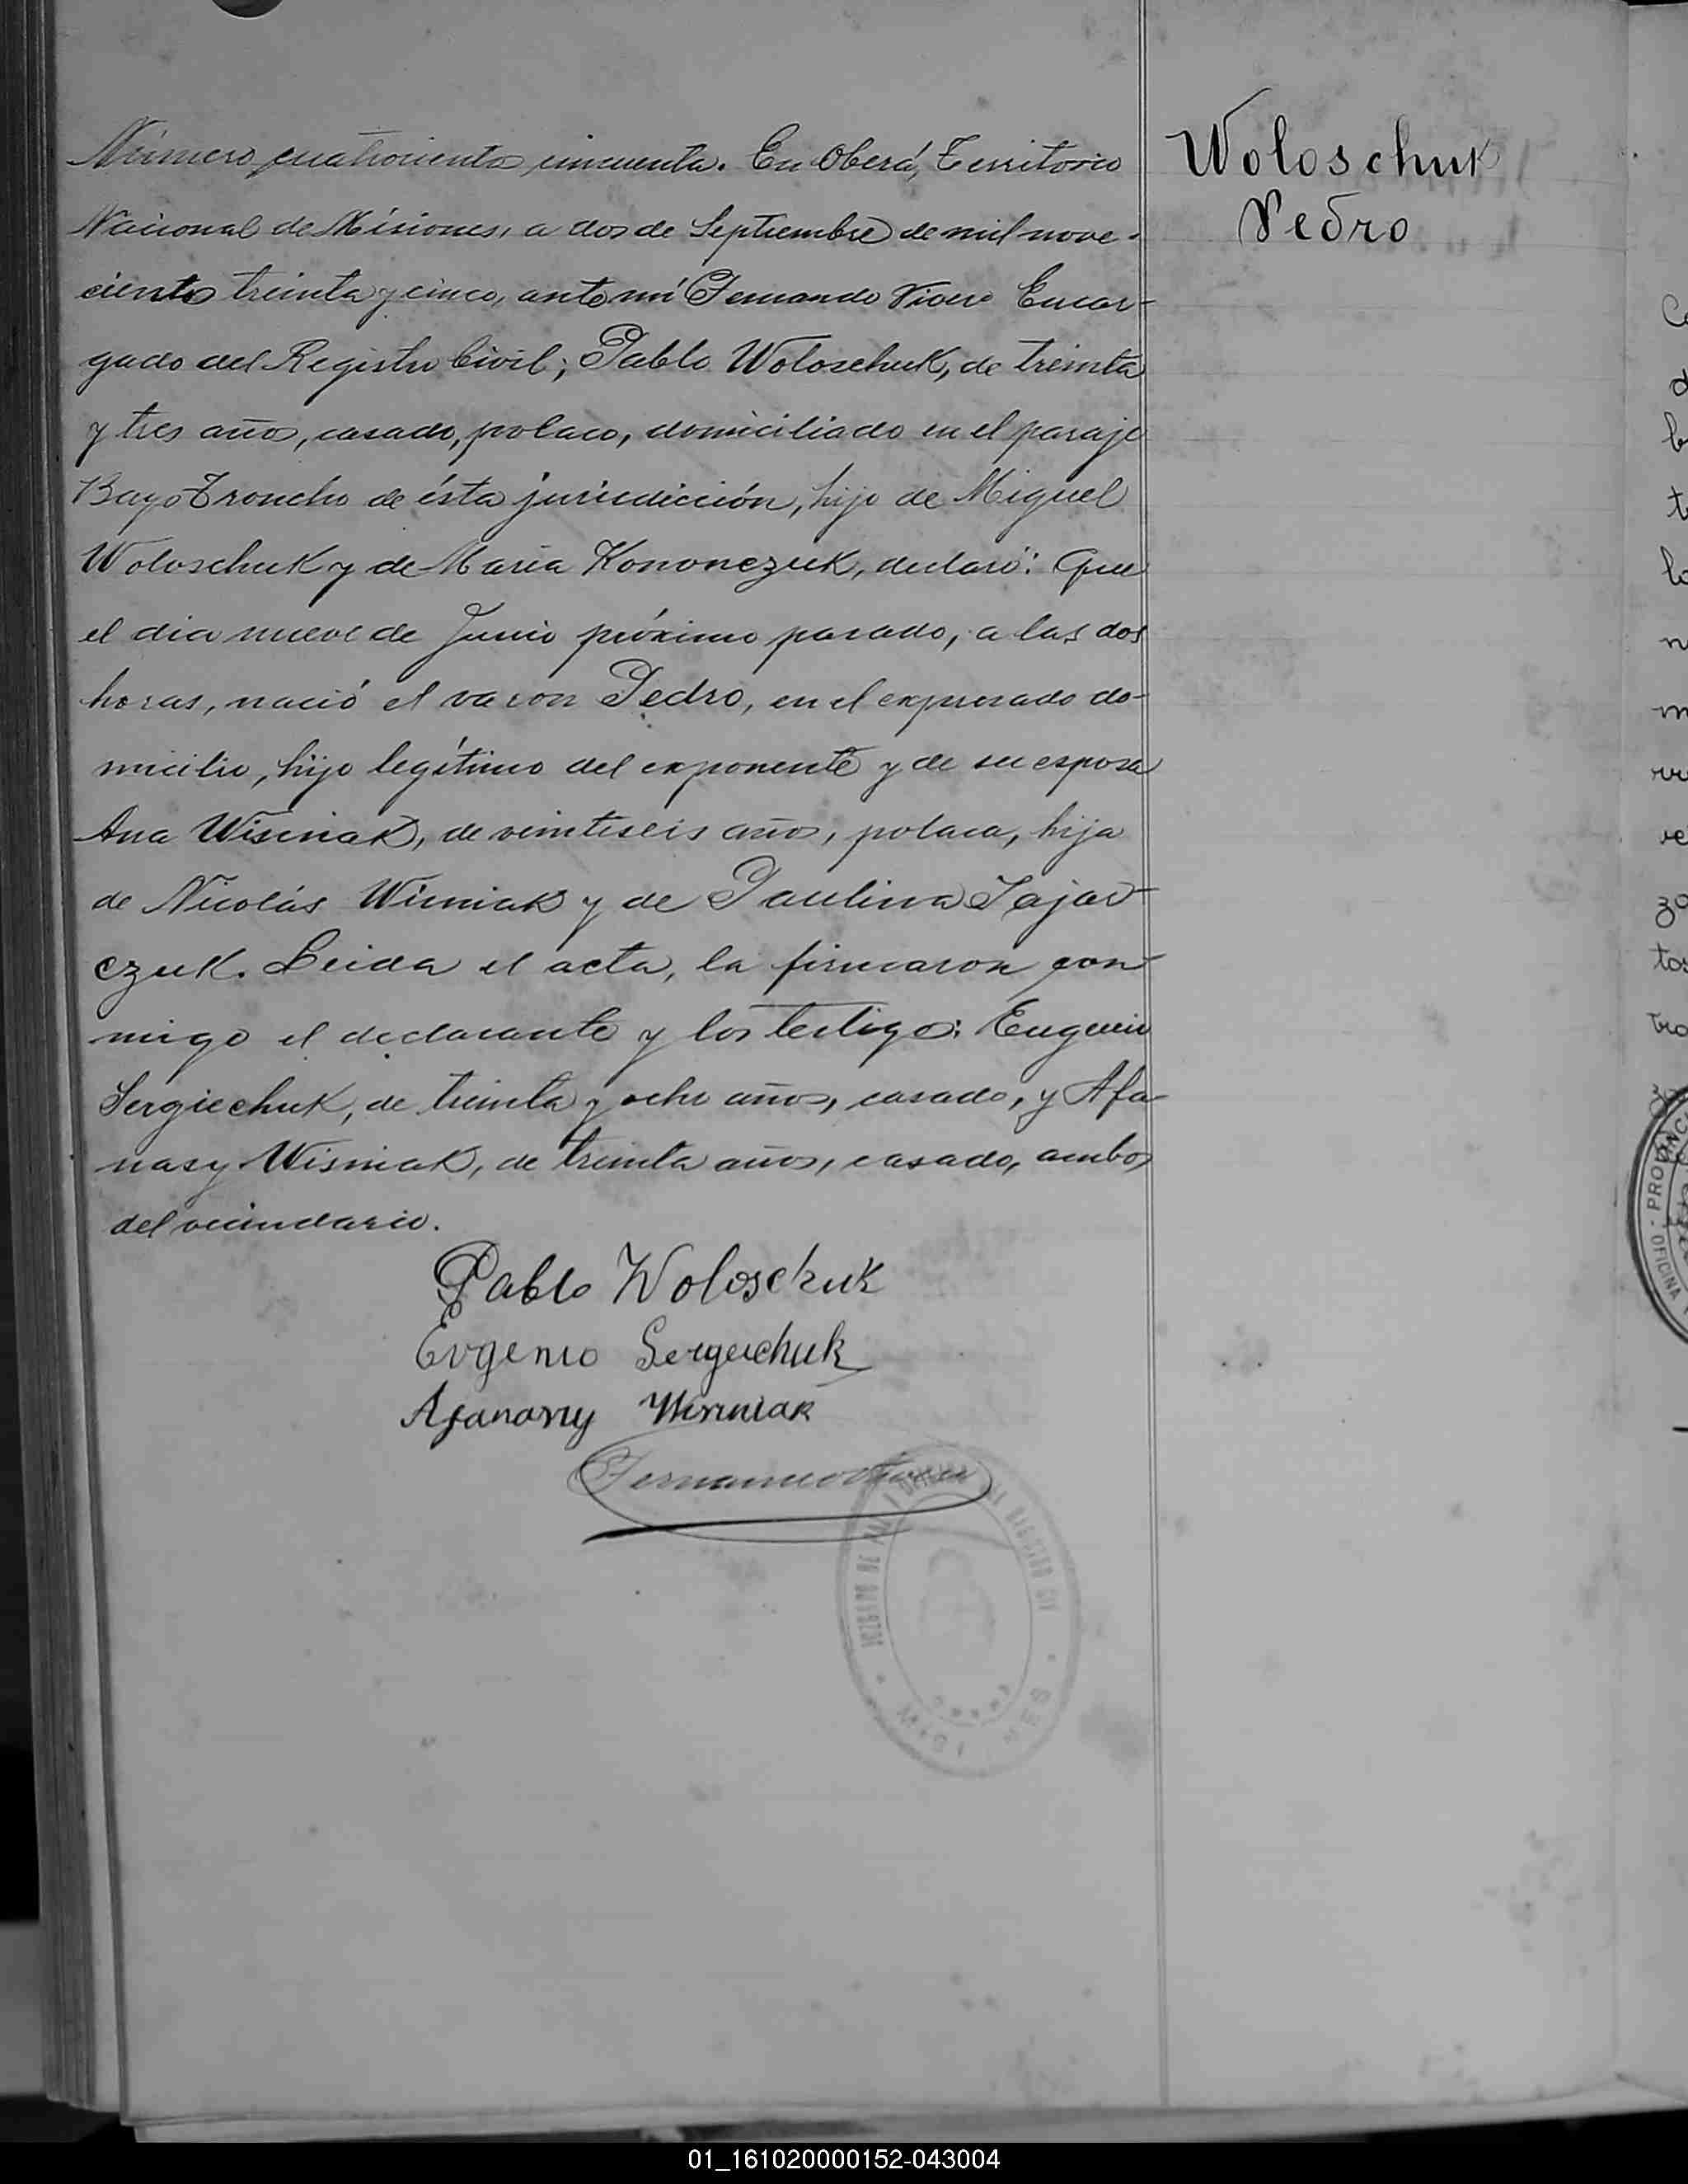 Número cuatrocientos cincuenta. En Oberá, Territorio
Nacional de Misiones, a dos de Septiembre de mil nove-
cientos treinta y cinco, ante mí Fernando Encar-
gado del Registro Civil; Pablo Woloschuk, de treinta
y tres años, casado, polaco, domiciliado en el paraje
Bayo Troncho de ésta jurisdicción, hijo de Miguel
Woloschuk y de María Kononczuk, declaró: Que
el dia nueve de Junio próximo pasado, a las dos
horas, nació el varon Pedro, en el expresado do-
micilio, hijo legítimo del exponente y de su esposa
Ana Wisniak, de veintiseis años, polaca, hija
de Nicolás Wisniak y de Paulina
czuk. Leida el acta, la firmaron con-
migo el declarante y los testigos: Eugenio
Sergiechuk, de treinta y ocho años, casado, y Afa-
nasy Wisniak, de treinta años, casado, ambos
del vecindario.
Pablo Woloschuk
Evgenio Sergeichuk
Afanasy Wisniak
Fernando
MISIONES
Woloschuk
Pedro
PROVINC
OFICINA
01_161020000152-043004